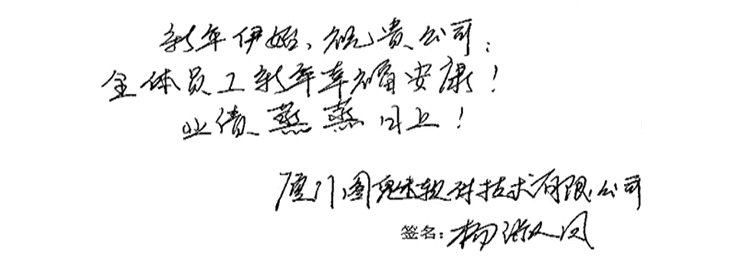 新年伊始、祝贵公司:
全体员工新年幸福安康!
业绩蒸蒸日上!
厦门图魅软科技术有限公司
签名:杨 凤